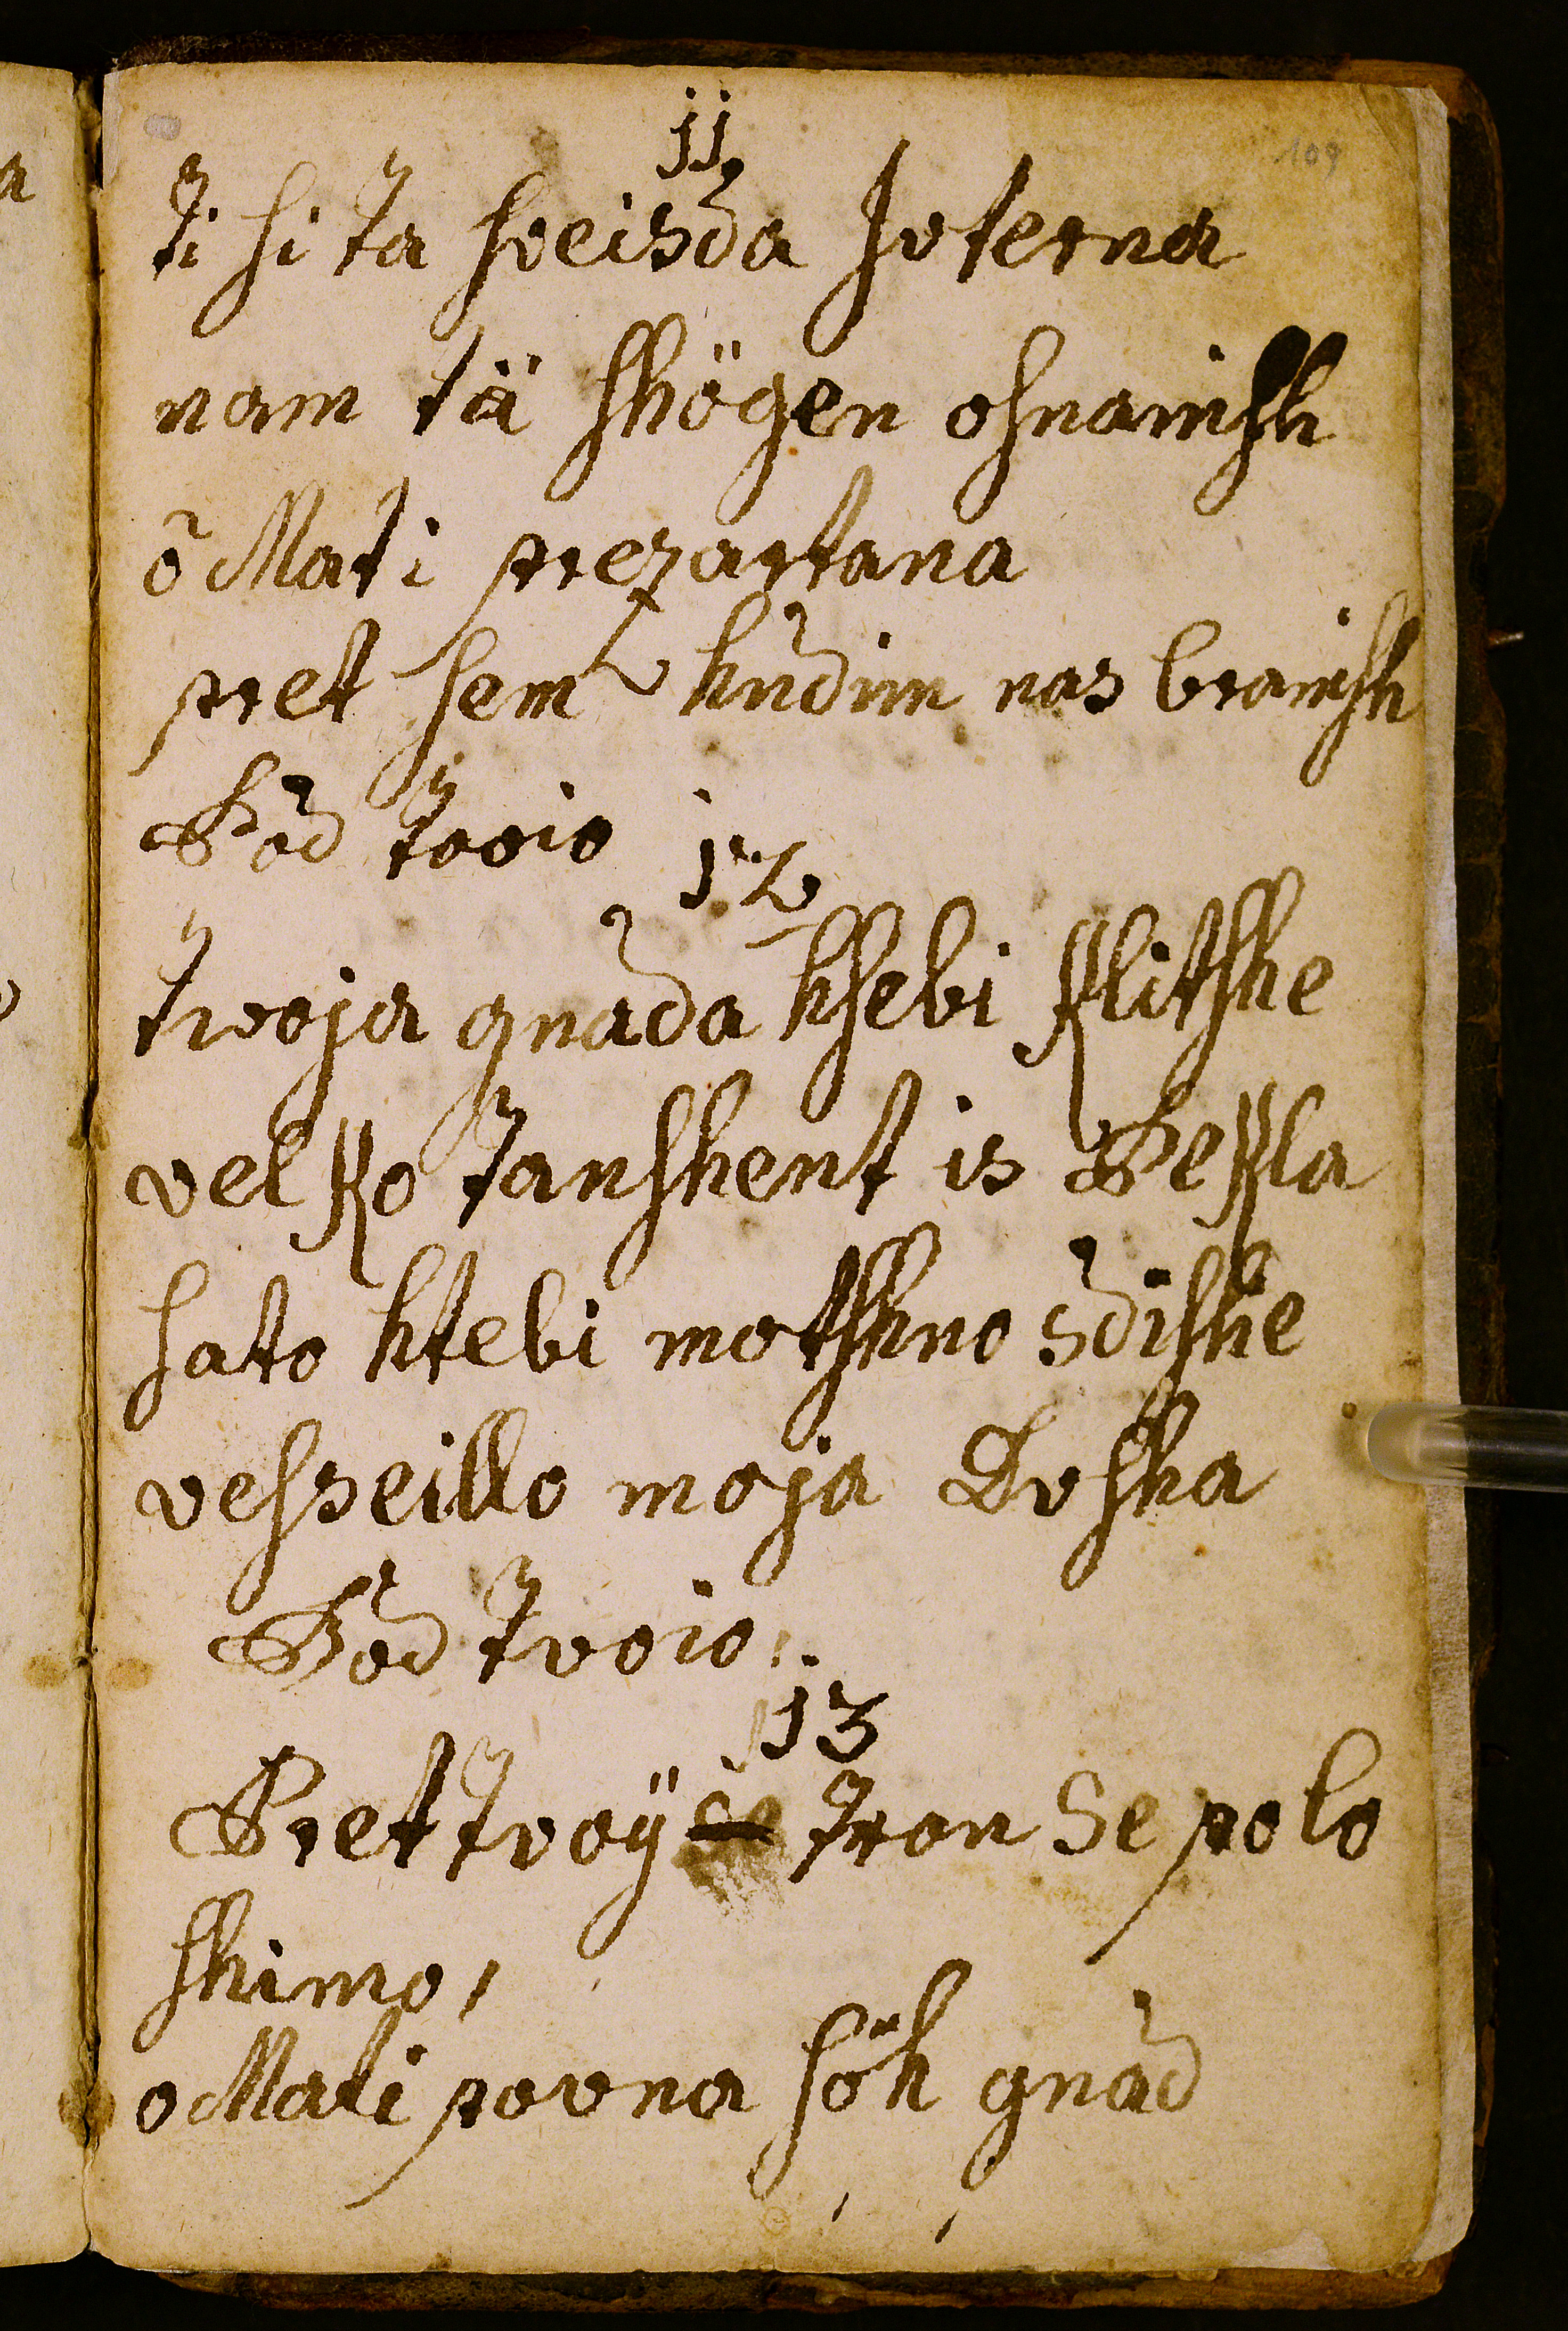 109
jj
ti si ta sveisda Juterna
nam tä shögen osnainsh
õ Mati prezartana
pret hem hudim nas brainsh
Pod tvoio
12
tvoja gnada ksebi klitshe
velko tanshent is Pekla
sato ktebi motshno sdishe
vesseillo moja Dusha
Pod tvoio
13
Pret tvoÿ tron se polo
shimo,
o Mati povna söh gnad